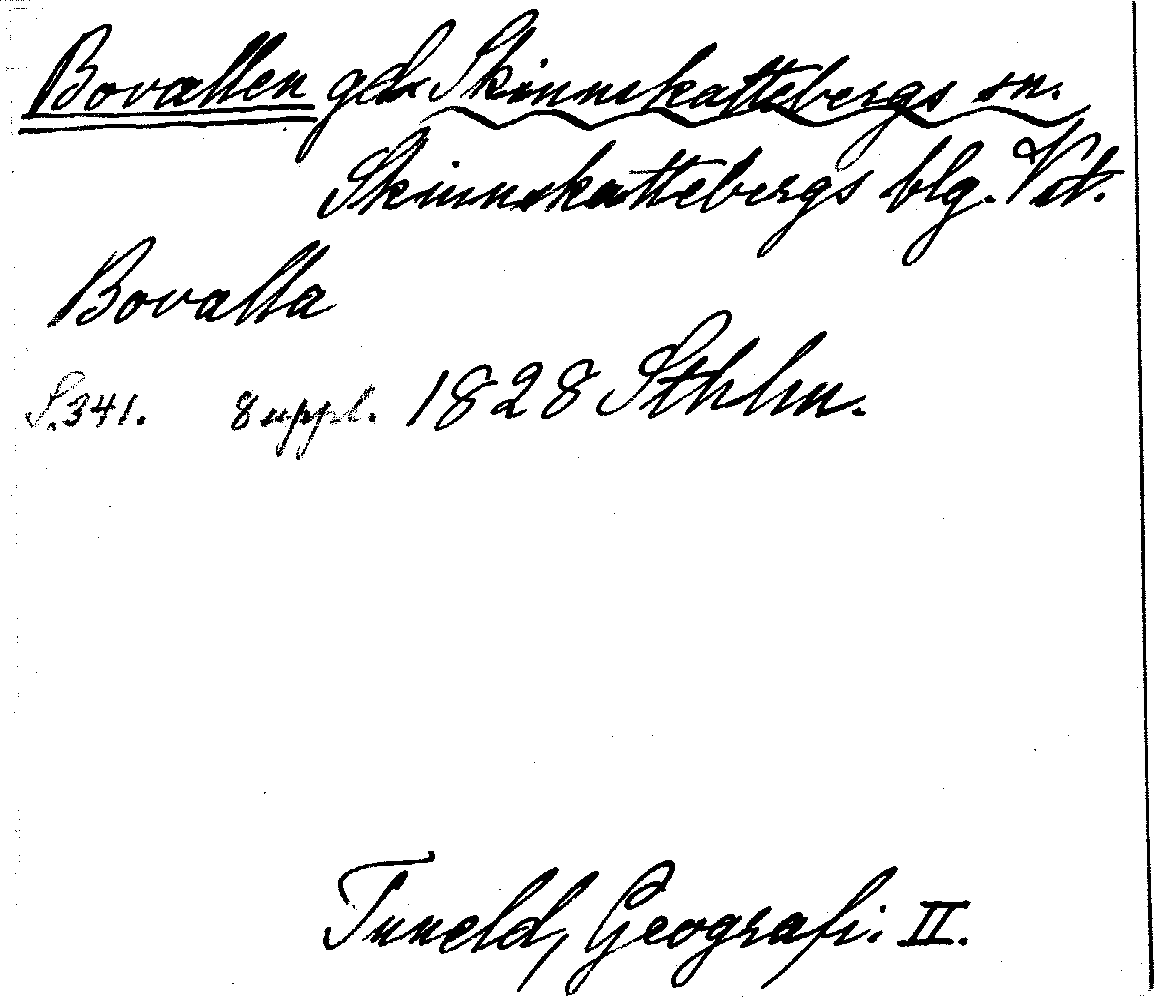 Bovallen gd. Skinnskattebergs sn.
Skinnskattebergs blg. Vst.
Bovalla
S. 341. 8 uppl. 1828 Sthlm.
Tuneld, Geografi. II.